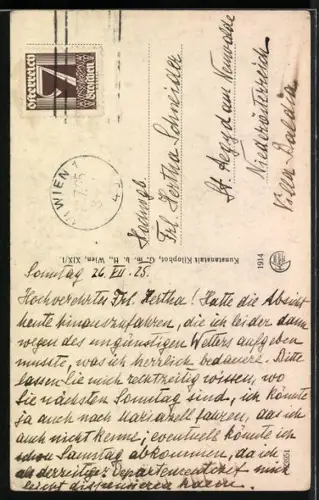 österreich
7
Groschen
WIEN 1
Hochwg.
Frl. Hertha Schneider
St. Aegyd am Neuwalde
Niederösterreich
Villa
Kunstanstalt Kilophot, G. m. b. H., Wien, XIX/1.
1914
Sonntag 26. VII. 25.
Hochverehrtes Frl. Hertha! Hatte die Absicht
heute hinauszufahren, die ich leider dann
wegen des ungünstigen Wetters aufgeben
musste, was ich herzlich bedauere. Bitte
lassen Sie mich rechtzeitig wissen, wo
Sie nächsten Sonntag sind, ich könnte
ja auch nach Mariazell fahren, das ich
auch nicht kenne; eventuell könnte ich
schon Samstag abkommen, da ich
als derzeitiger mich
leicht dispensieren kann.